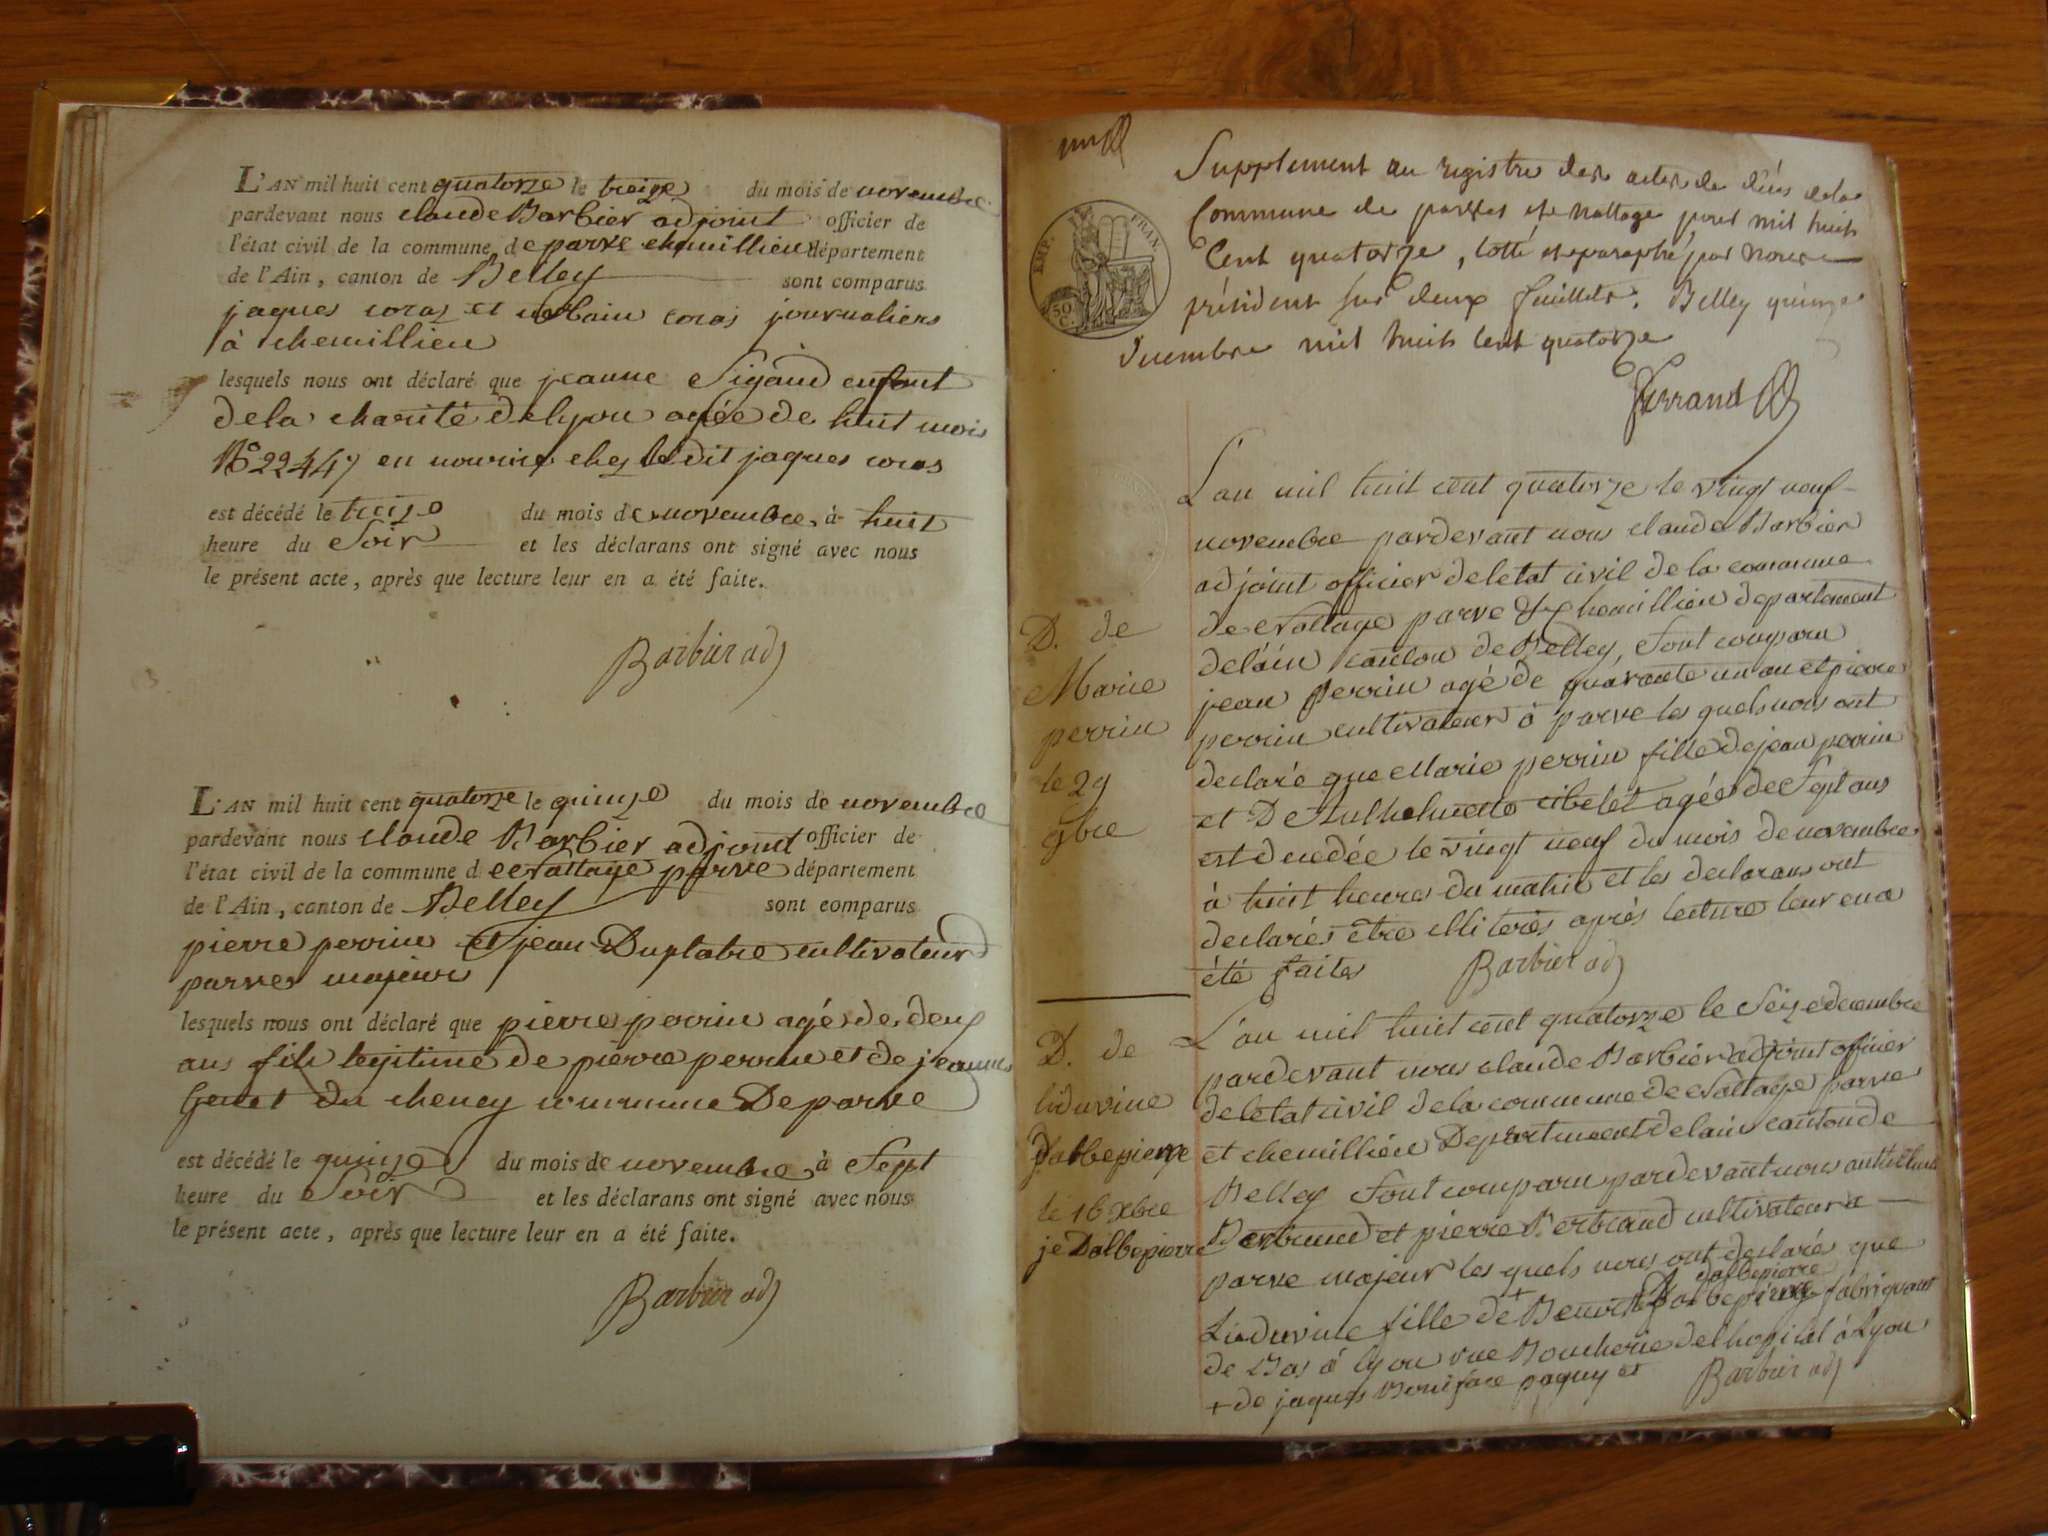 L'AN mil huit cent quatorze le treize du mois de novembre
pardevant nous claude Barbier adjoint officier de
l'état civil de la commune de parve chemillieu département
de l'Ain, canton de Belley sont comparus
jaques coras et urbain coras journaliers
à chemillieu
lesquels nous ont déclaré que jeanne Sigaud enfant
de la charité de lyon agée de huit mois
No 22447 en nourice chez ledit jaques coras
est décédé le treize du mois de novembre à huit
heure du Soir et les déclarans ont signé avec nous
le présent acte, après que lecture leur en a été faite.
Barbier adj
L'AN mil huit cent quatorze le quinze du mois de novembre
pardevant nous claude Barbier adjoint officier de
l'état civil de la commune de Nattage parve département
de l'Ain, canton de Belley sont comparus
pierre perrin et jean Duplatre cultivateur
parves majeur
lesquels nous ont déclaré que pierre perrin agé de deux
ans fils legitime de pierre perrin et de jeanne
du cheney commune De parve
est décédé le quinze du mois de novembre à Sept
heure du Soir et les déclarans ont signé avec nous
le présent acte, après que lecture leur en a été faite.
Barbier adj
Supplement au registre des actes de décès de la
Commune de parves et Nattage pour mil huit
Cent quatorze, cotté et paraphé par nous
président sur deux feuillets. Belley quinze
décembre mil huit cent quatorze
Ferrand
EMP. FRAN.
50 C.
L'an mil huit cent quatorze le vingt neuf
novembre pardevant nous claude Barbier
adjoint officier de letat civil de la commune
de Nattage parve & chemillieu departement
de lain canton de Belley, Sont comparu
jean perrin agé de quarante un an et pierre
perrin cultivateur à parve les quels nous ont
declaré que Marie perrin fille de jean perrin
et De Anthelmette cibelet agée de Sept ans
est decedée le vingt neuf du mois de novembre
à huit heures du matin et les declarans ont
declarés être illiterés après lecture leur en a
été faites Barbier adj
D. de
Marie
perrin
le 29
9bre
L'an mil huit cent quatorze le Seize decembre
pardevant nous claude Barbier adjoint officier
de letat civil de la commune de Nattage parve
et chemillieu Departement de lain canton de
Belley Sont comparu pardevant nous anthelme
Berbrand et pierre Berbrand cultivateur a
parve majeur les quels nous ont declarés que
dalbepierre
Liduvine fille de + Benoit Dalbepierre fabriquant
de Bas à lyon rue Boucherie de lhopital à Lyon
+ de jaques Boniface paquy et Barbier adj
D. de
liduvine
Dalbepierre
le 16 Xbre
je Dalbepierre